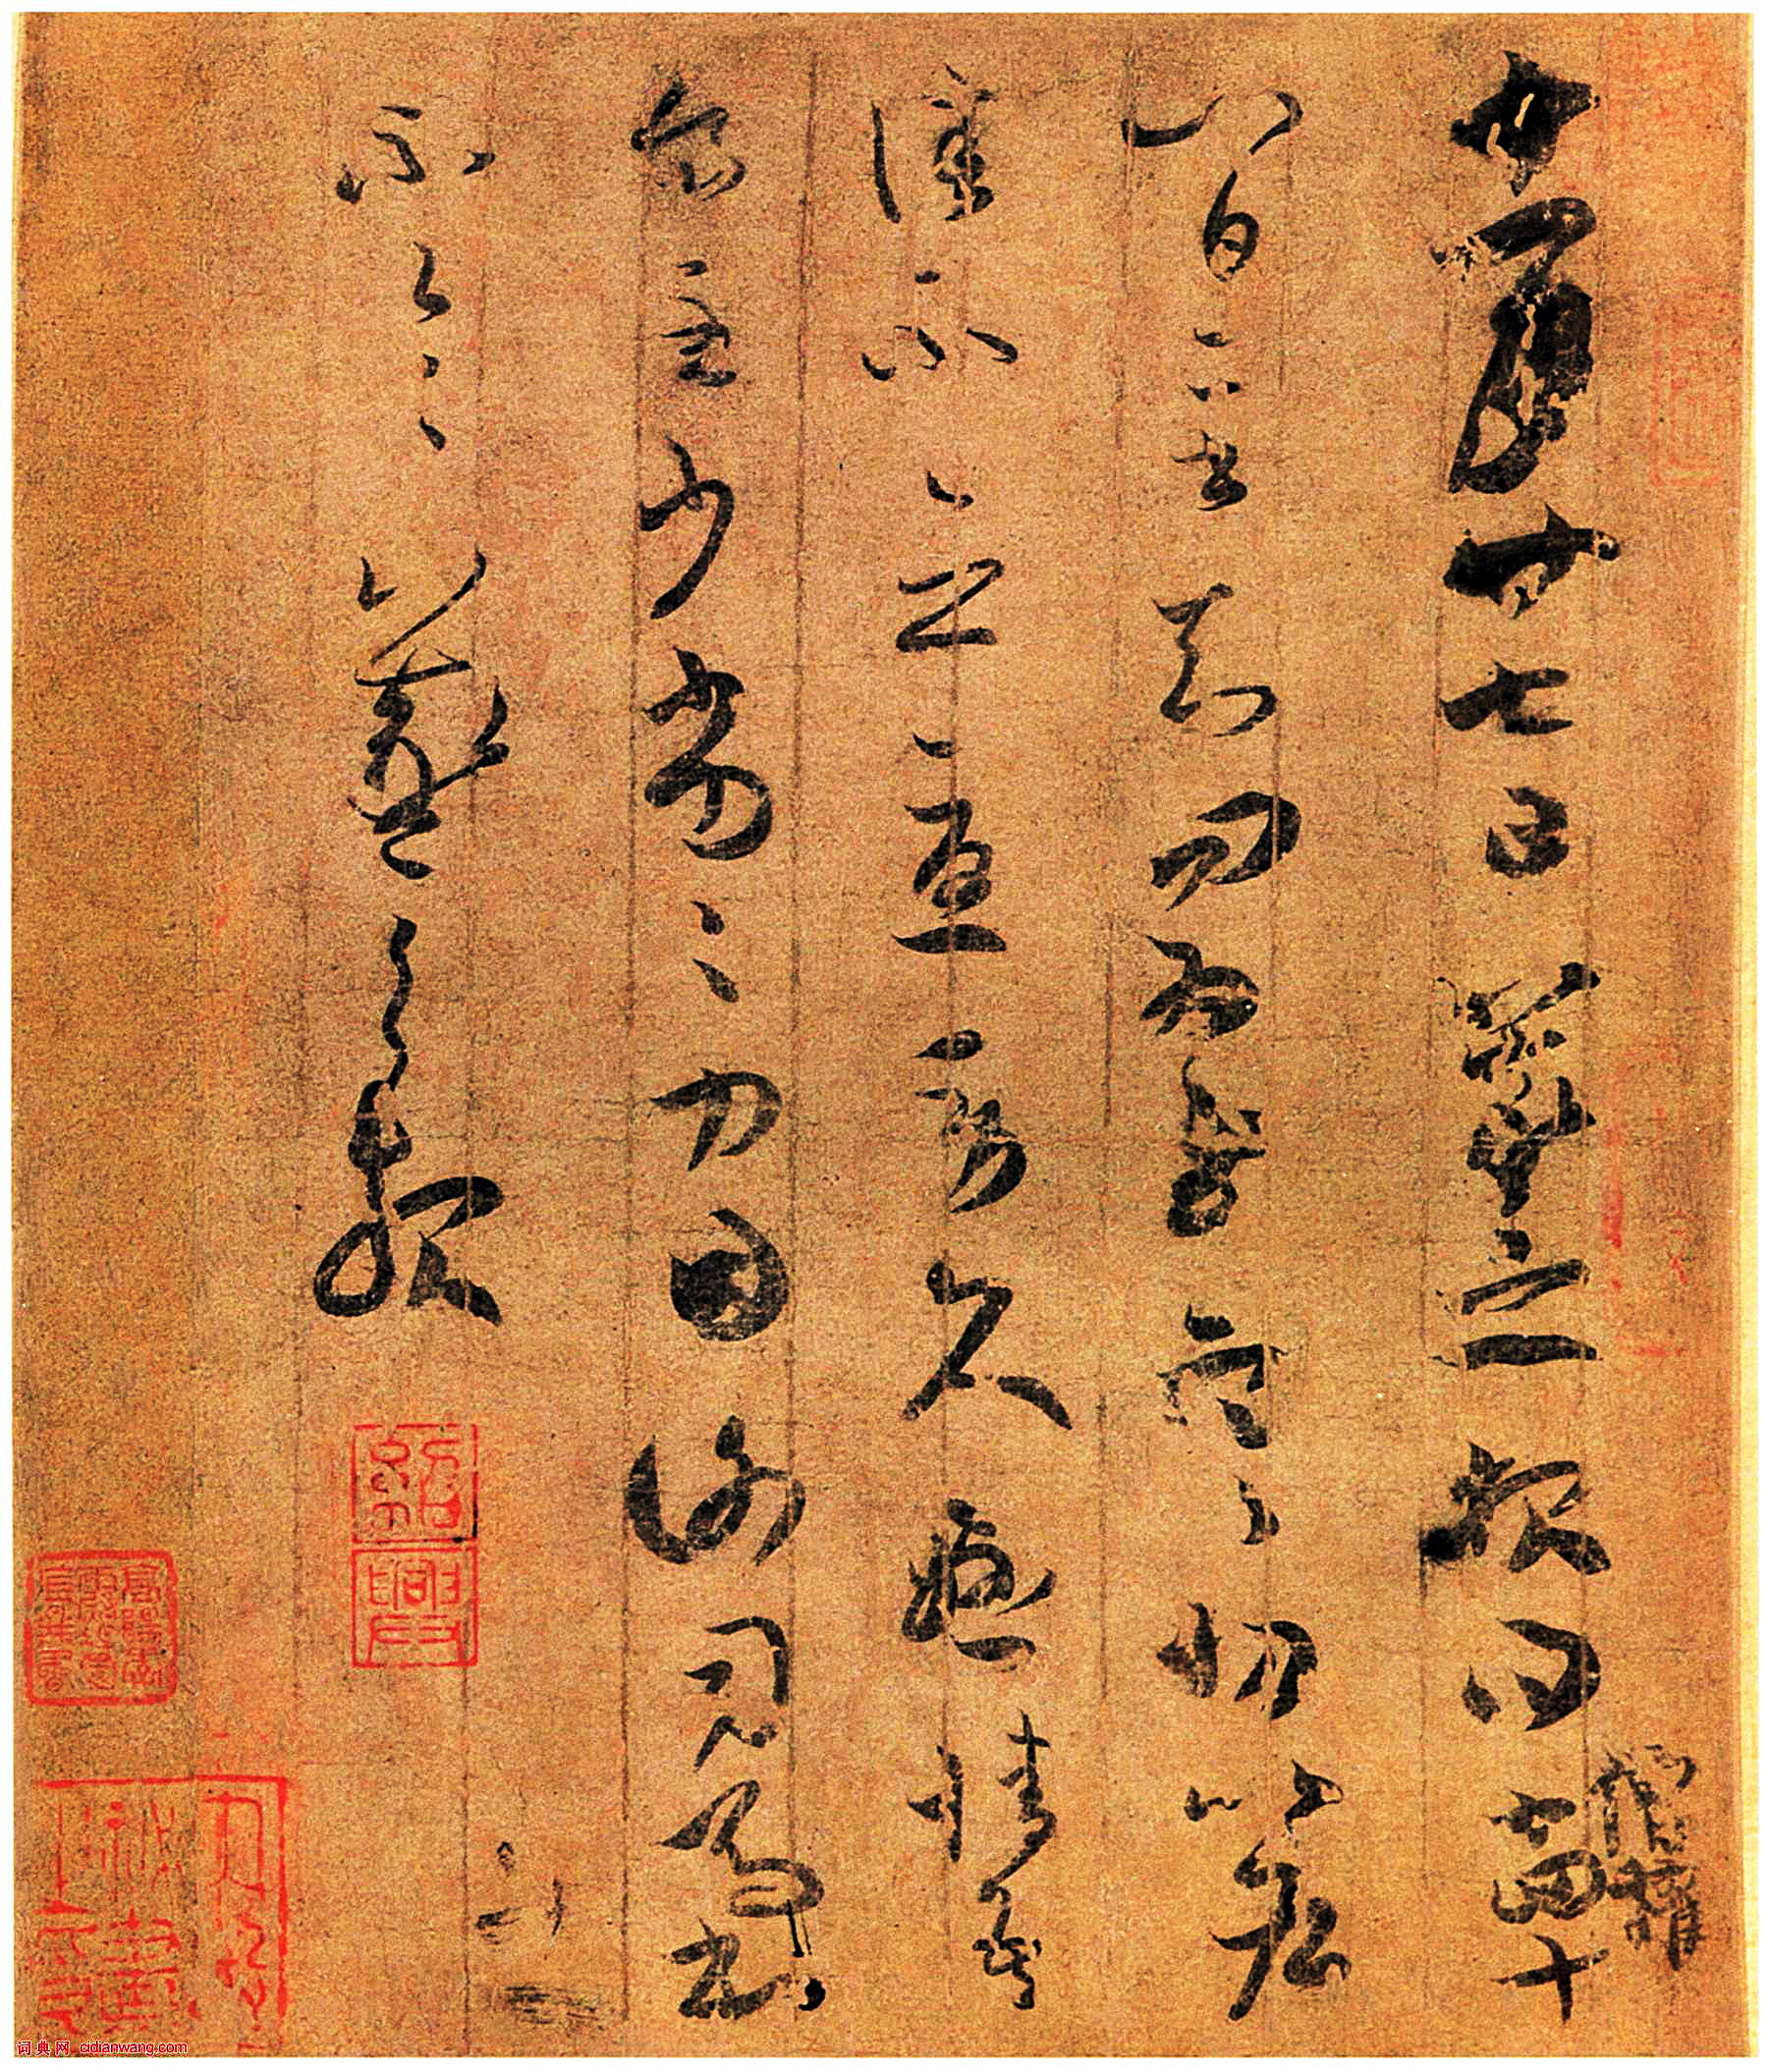 十一月廿七日羲之報得十四十
八日二書知問為慰寒切比各
佳不念憂勞久懸情吾
食至少劣劣力因謝司馬書
不一一羲之報
僧權
紹興
词典网 cidianwang.com